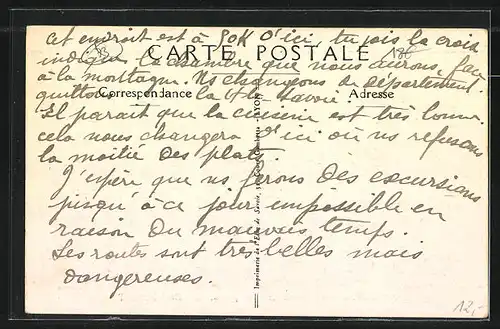 cet endroit est à 90K d'ici, tu vois la croix
CARTE POSTALE
indique la chambre que nous aurons, face
à la montagne. Ns changeons de département,
quittons la Hte Savoie.
Correspondance
Adresse
Il parait que la cuisine est très bonne
cela nous changera d'ici où ns refusons
la moitié des plats.
J'espère que ns ferons des excursions
jusqu'à ce jour impossible en
raison du mauvais temps.
Les routes sont très belles mais
dangereuses.
12,-